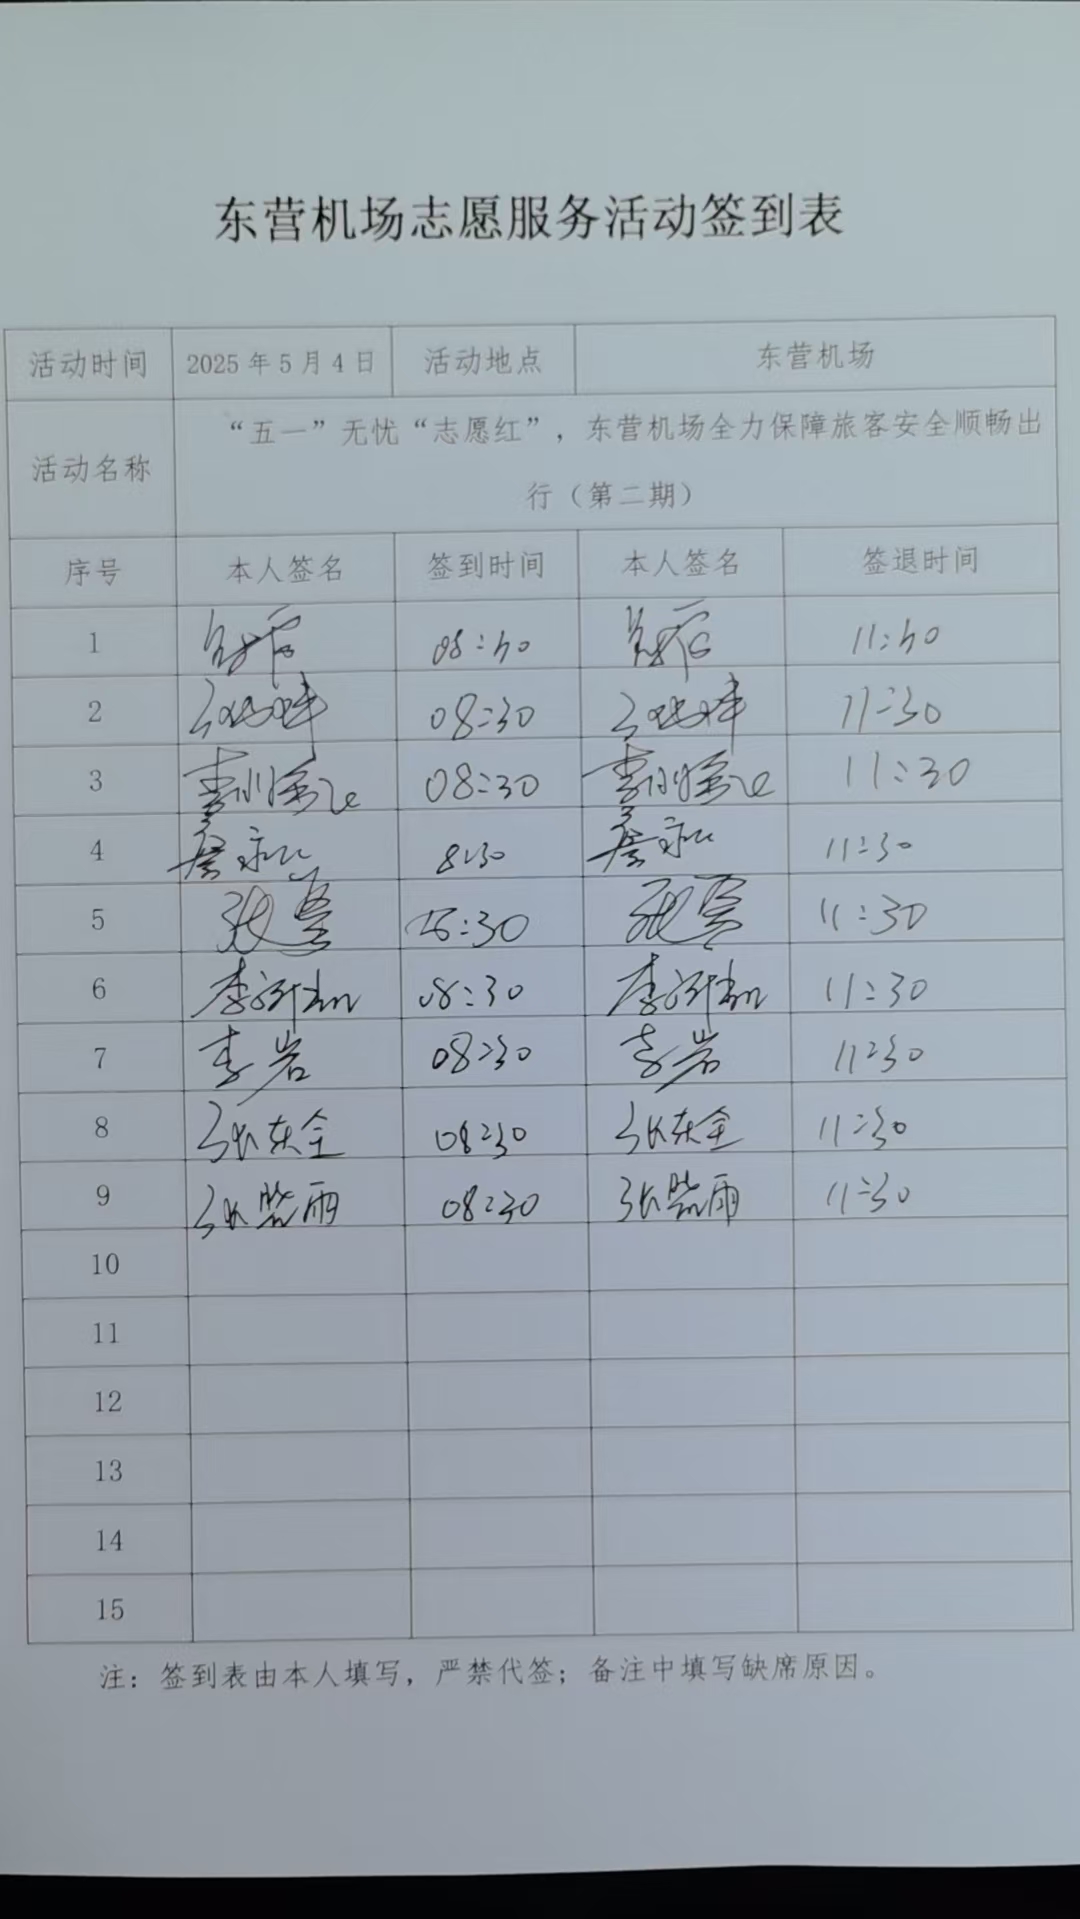 东营机场志愿服务活动签到表
活动时间 2025年5月4日 活动地点 东营机场
活动名称 “五一”无忧“志愿红”，东营机场全力保障旅客安全顺畅出
行（第二期）
序号 本人签名 签到时间 本人签名 签退时间
1
2 08:30 11:30
3 08:30 11:30
4 8:30 11:30
5 11:30
6 08:30 11:30
7 李岩 08:30 李岩 11:30
8 08:30 11:30
9 张晓雨 08:30 张晓雨 11:30
10
11
12
13
14
15
注：签到表由本人填写，严禁代签；备注中填写缺席原因。